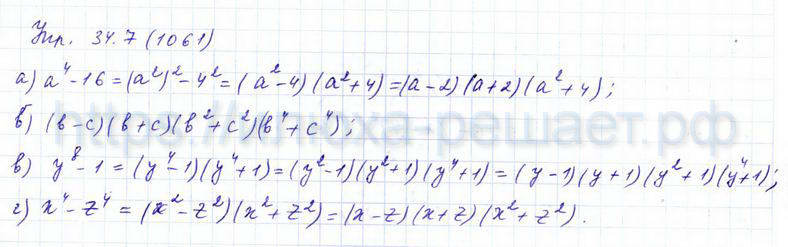 Упр. 34.7 (1061)
а) a⁴-16 = (a²)²-4² = (a²-4)(a²+4) = (a-2)(a+2)(a²+4);
б) (b-c)(b+c)(b²+c²)(b⁴+c⁴);
в) y⁸-1 = (y⁴-1)(y⁴+1) = (y²-1)(y²+1)(y⁴+1) = (y-1)(y+1)(y²+1)(y⁴+1);
г) x⁴-z⁴ = (x²-z²)(x²+z²) = (x-z)(x+z)(x²+z²).